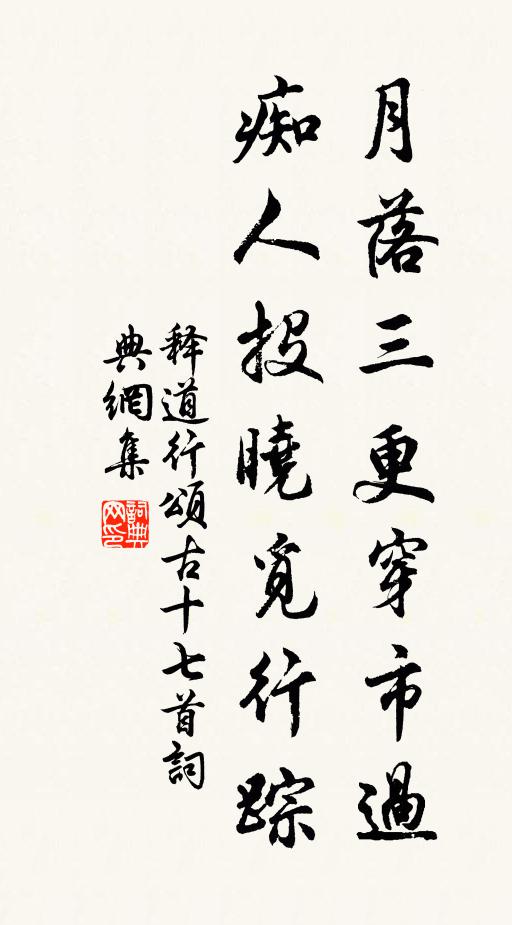 月落三更穿市過
痴人投曉覓行踪
释道行頌古十七首詞
典網集
詞典网印